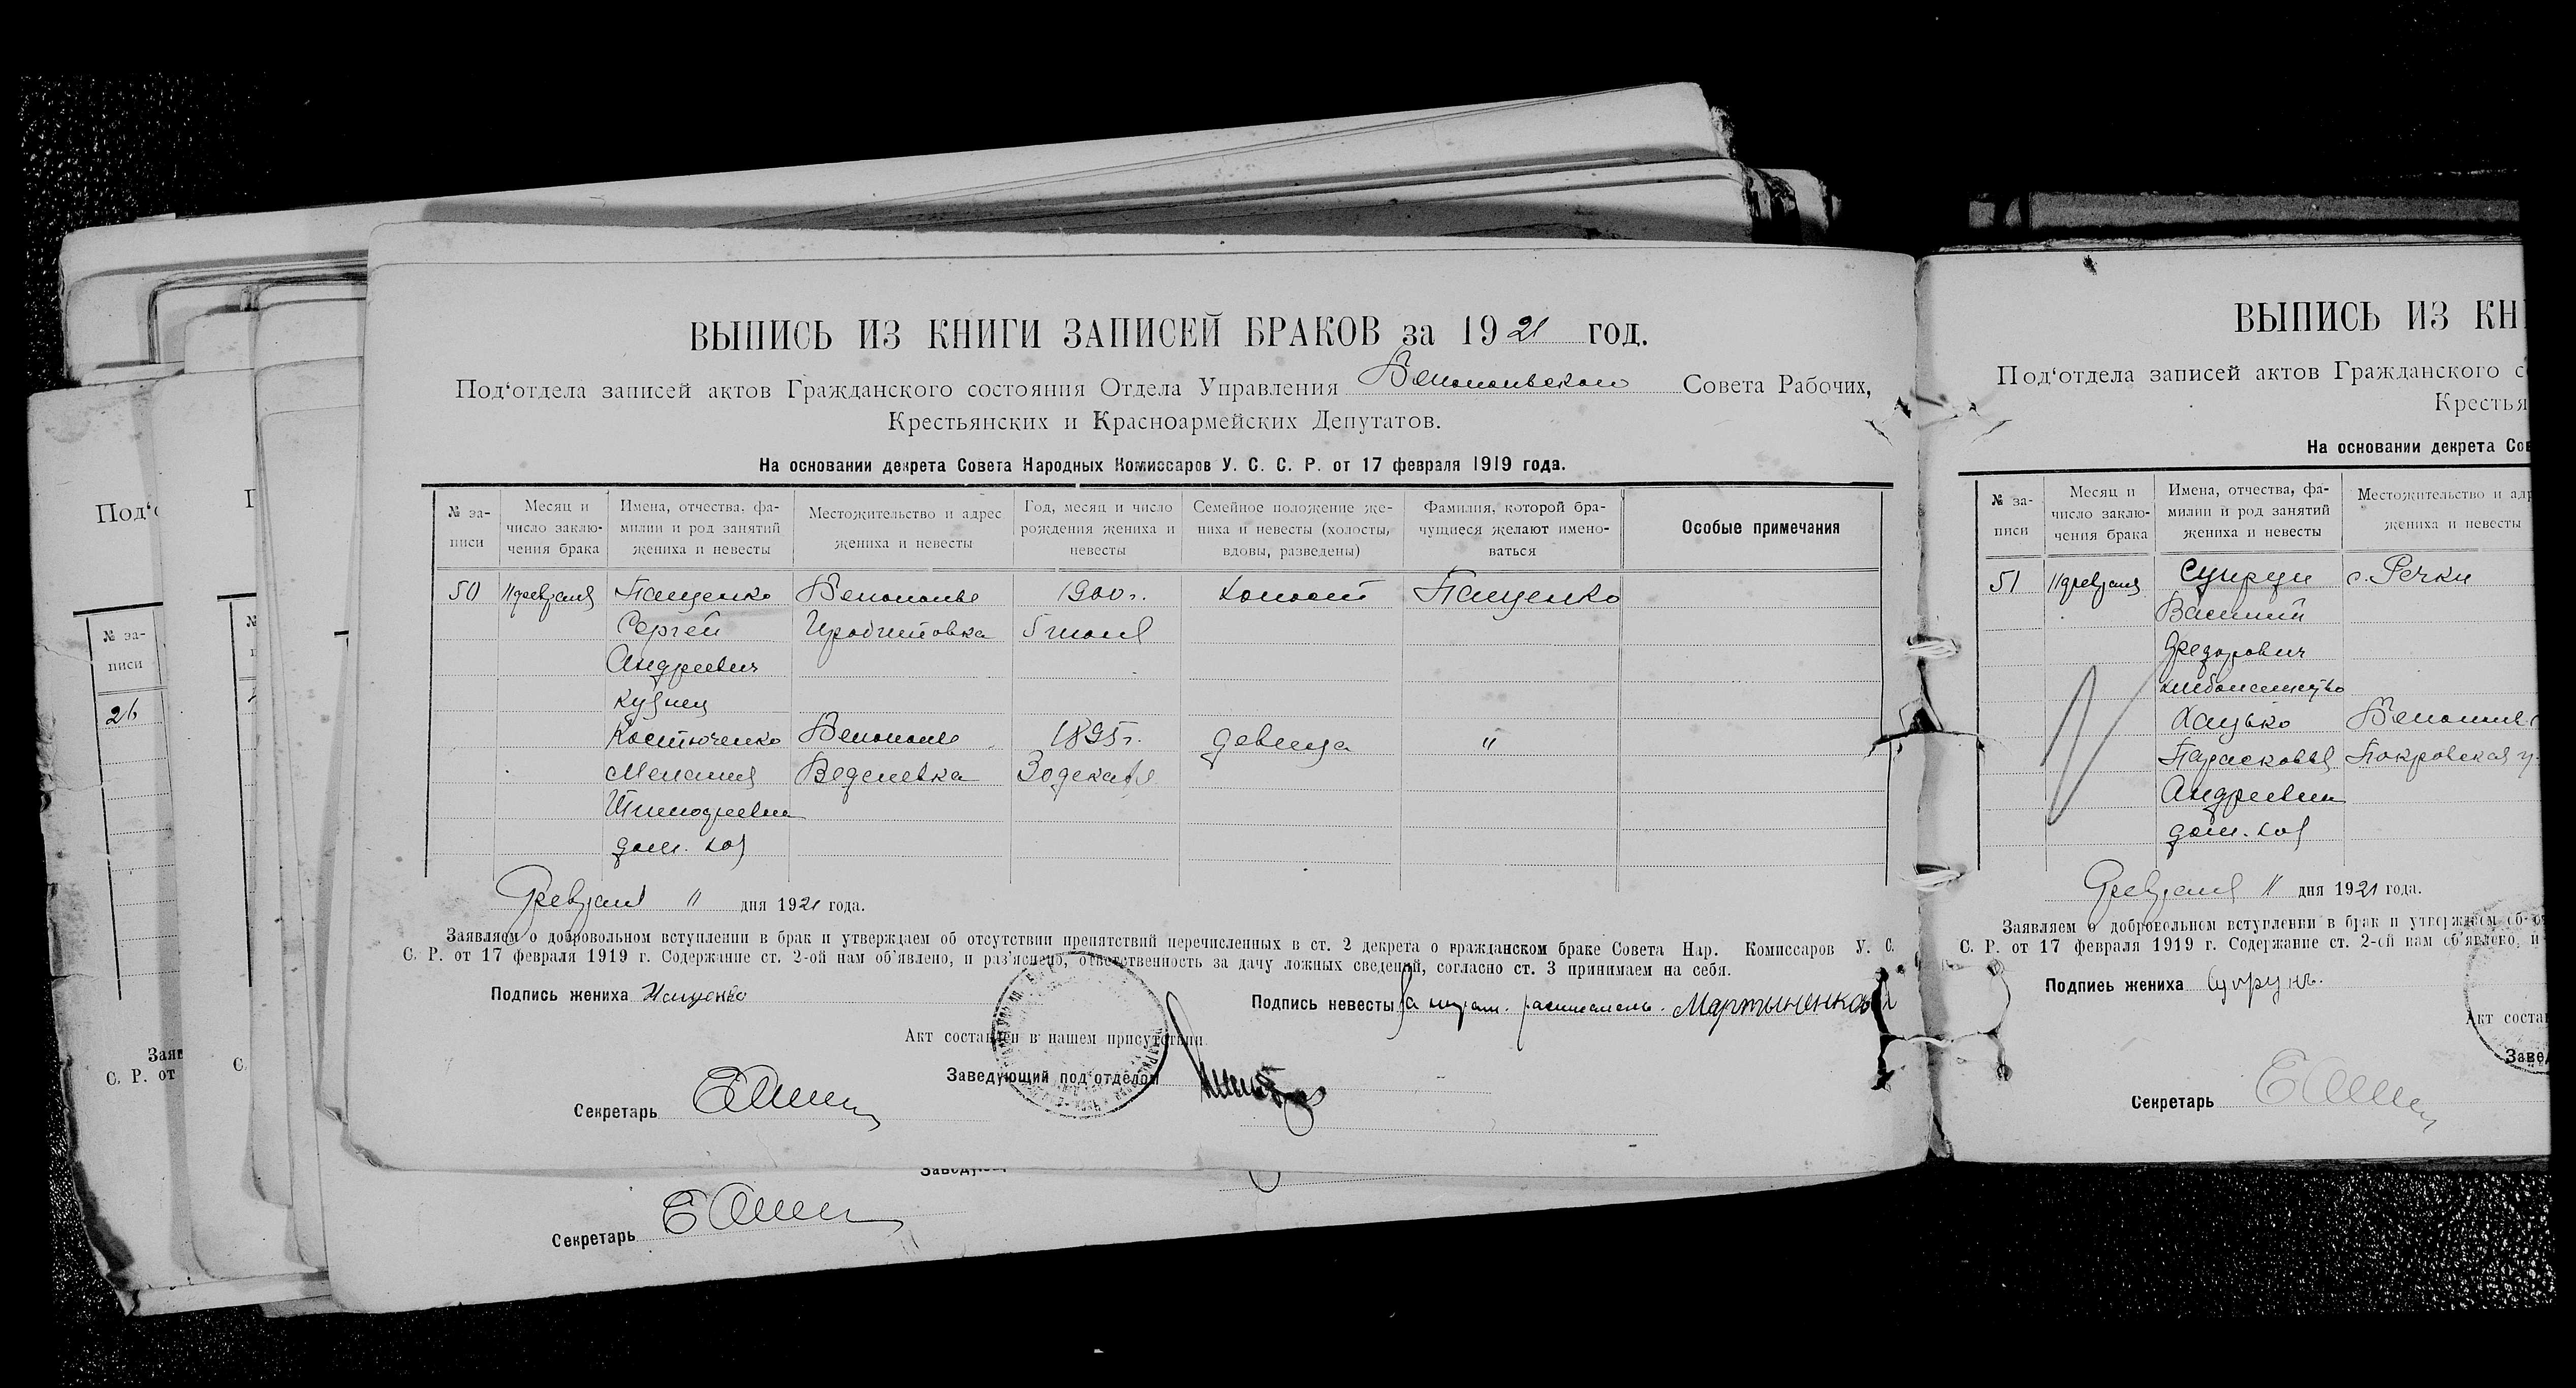 ВЫПИСЬ ИЗ КНИГИ ЗАПИСЕЙ БРАКОВ за 1921 год.
Под‘отдела записей актов Гражданского состояния Отдела Управления Белопольского Совета Рабочих,
Крестьянских и Красноармейских Депутатов.
На основании декрета Совета Народных Комиссаров У. С. С. Р. от 17 февраля 1919 года.
№ за-писи
Месяц и число заклю-чения брака
Имена, отчества, фа-милии и род занятий жениха и невесты
Местожительство и адрес жениха и невесты
Год, месяц и число рождения жениха и невесты
Семейное положение же-ниха и невесты (холосты, вдовы, разведены)
Фамилия, которой бра-чущиеся желают имено-ваться
Особые примечания
50 11 февраля Пащенко Белополье 1900 г. холост Пащенко
Сергей 5 июля
Андреевич
кузнец
Костюченко Белополье 1895 г. девица "
Мелания 30 декабря
Тимофеевна
дом. хоз
Февраля 11 дня 1921 года.
Заявляем о добровольном вступлении в брак и утверждаем об отсутствии препятствий перечисленных в ст. 2 декрета о гражданском браке Совета Нар. Комиссаров У. С.
С. Р. от 17 февраля 1919 г. Содержание ст. 2-ой нам об‘явлено, и раз‘яснено, ответственность за дачу ложных сведений, согласно ст. 3 принимаем на себя.
Подпись жениха Пащенко
Подпись невесты За неграм. Мартыненко
Акт составлен в нашем присутствии
Заведующий под‘отделом
Секретарь
Секретарь
ВЫПИСЬ ИЗ КН
Под‘отдела записей актов Гражданского с
Крестья
На основании декрета Сов
№ за-писи
Месяц и число заклю-чения брака
Имена, отчества, фа-милии и род занятий жениха и невесты
Местожительство и адр
жениха и невесты
51 11 февраля Супрун с. Речки
Василий
Федорович
хлебопашество
Хацько
Парасковья Покровская
Андреевна
дом. хоз
Февраля 11 дня 1921 года.
Заявляем о добровольном вступлении в брак и утверждаем об
С. Р. от 17 февраля 1919 г. Содержание ст. 2-ой нам об‘явлено, и
Подпись жениха Супрунъ.
Акт соста
Завед
Секретарь
Под‘о
№ за-
писи
26
Заяв
С. Р. от